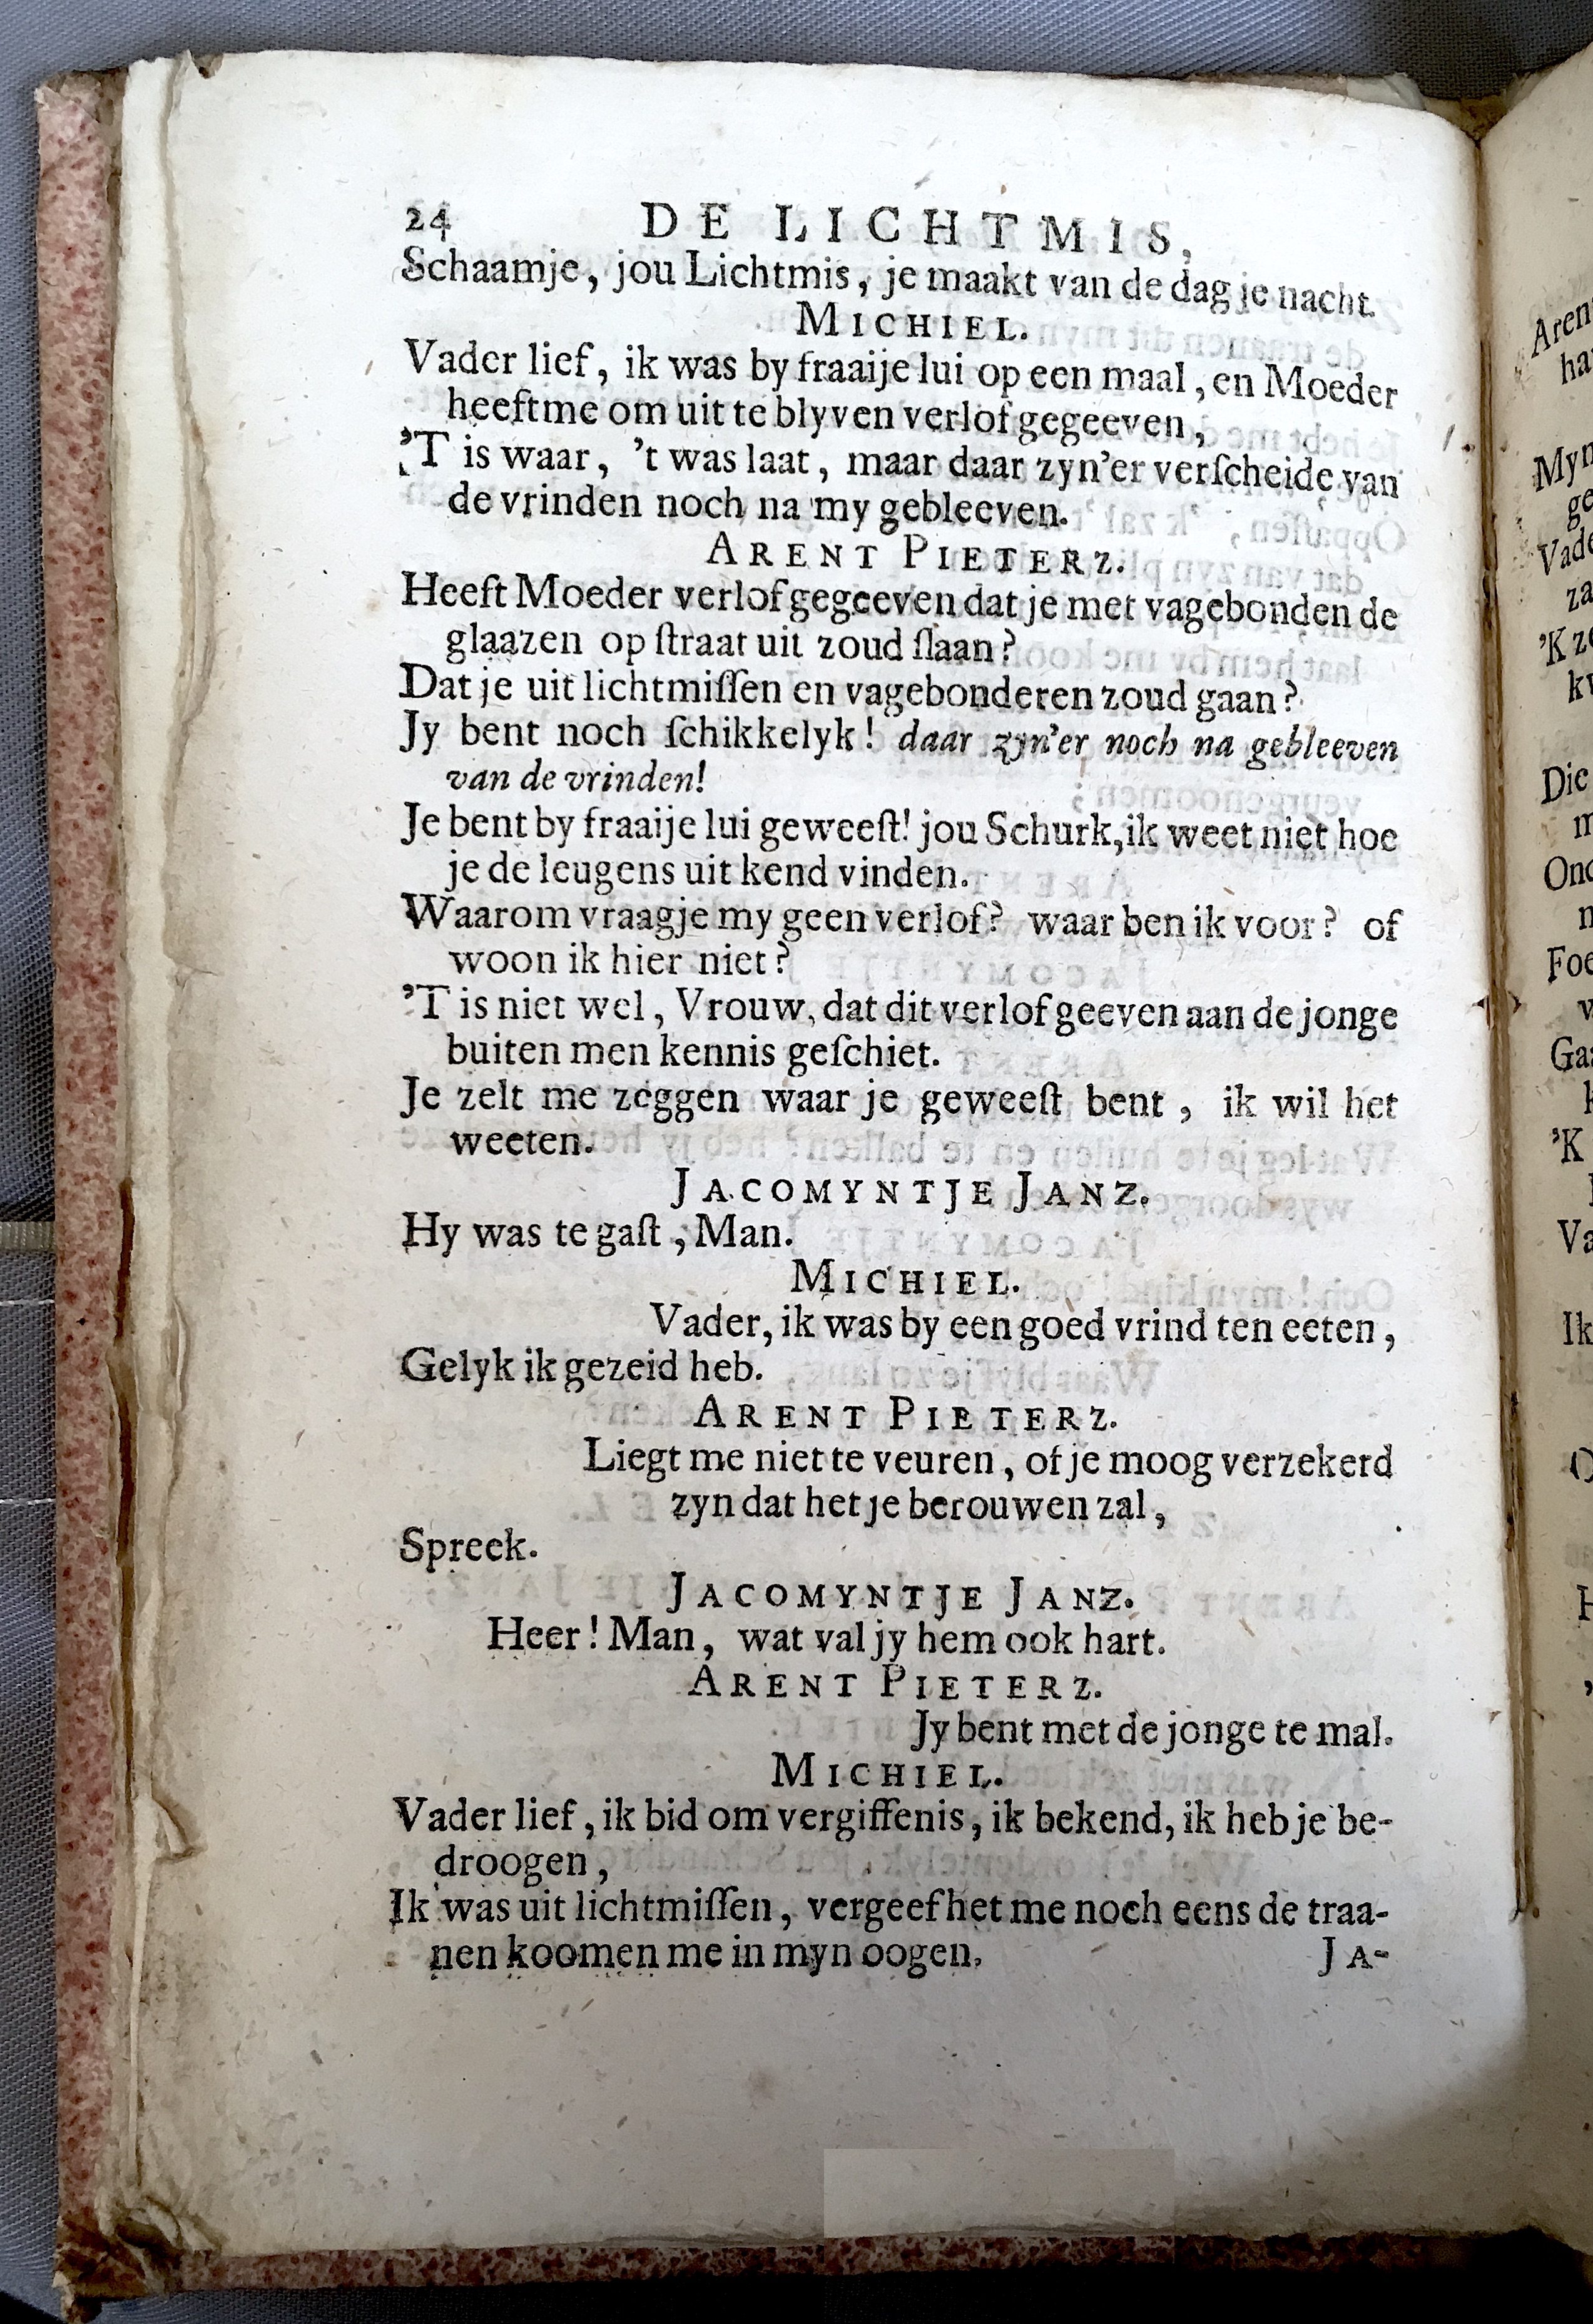 24 DE LICHTMIS,
Schaamje, jou Lichtmis, je maakt van de dag je nacht.
MICHIEL.
Vader lief, ik was by fraaije lui op een maal, en Moeder
heeft me om uit te blyven verlof gegeeven,
'T is waar, 't was laat, maar daar zyn'er verſcheide van
de vrinden noch na my gebleeven.
ARENT PIETERZ.
Heeft Moeder verlof gegeeven dat je met vagebonden de
glaazen op ſtraat uit zoud ſlaan?
Dat je uit lichtmiſſen en vagebonderen zoud gaan?
Jy bent noch ſchikkelyk! daar zyn'er noch na gebleeven
van de vrinden!
Je bent by fraaije lui geweeſt! jou Schurk, ik weet niet hoe
je de leugens uit kend vinden.
Waarom vraagje my geen verlof? waar ben ik voor? of
woon ik hier niet?
'T is niet wel, Vrouw, dat dit verlof geeven aan de jonge
buiten men kennis geſchiet.
Je zelt me zeggen waar je geweeſt bent, ik wil het
weeten.
JACOMYNTJE JANZ.
Hy was te gaſt, Man.
MICHIEL.
Vader, ik was by een goed vrind ten eeten,
Gelyk ik gezeid heb.
ARENT PIETERZ.
Liegt me niet te veuren, of je moog verzekerd
zyn dat het je berouwen zal,
Spreek.
JACOMYNTJE JANZ.
Heer! Man, wat val jy hem ook hart.
ARENT PIETERZ.
Jy bent met de jonge te mal.
MICHIEL.
Vader lief, ik bid om vergiffenis, ik bekend, ik heb je be-
droogen,
Ik was uit lichtmiſſen, vergeef het me noch eens de traa-
nen koomen me in myn oogen.
JA-